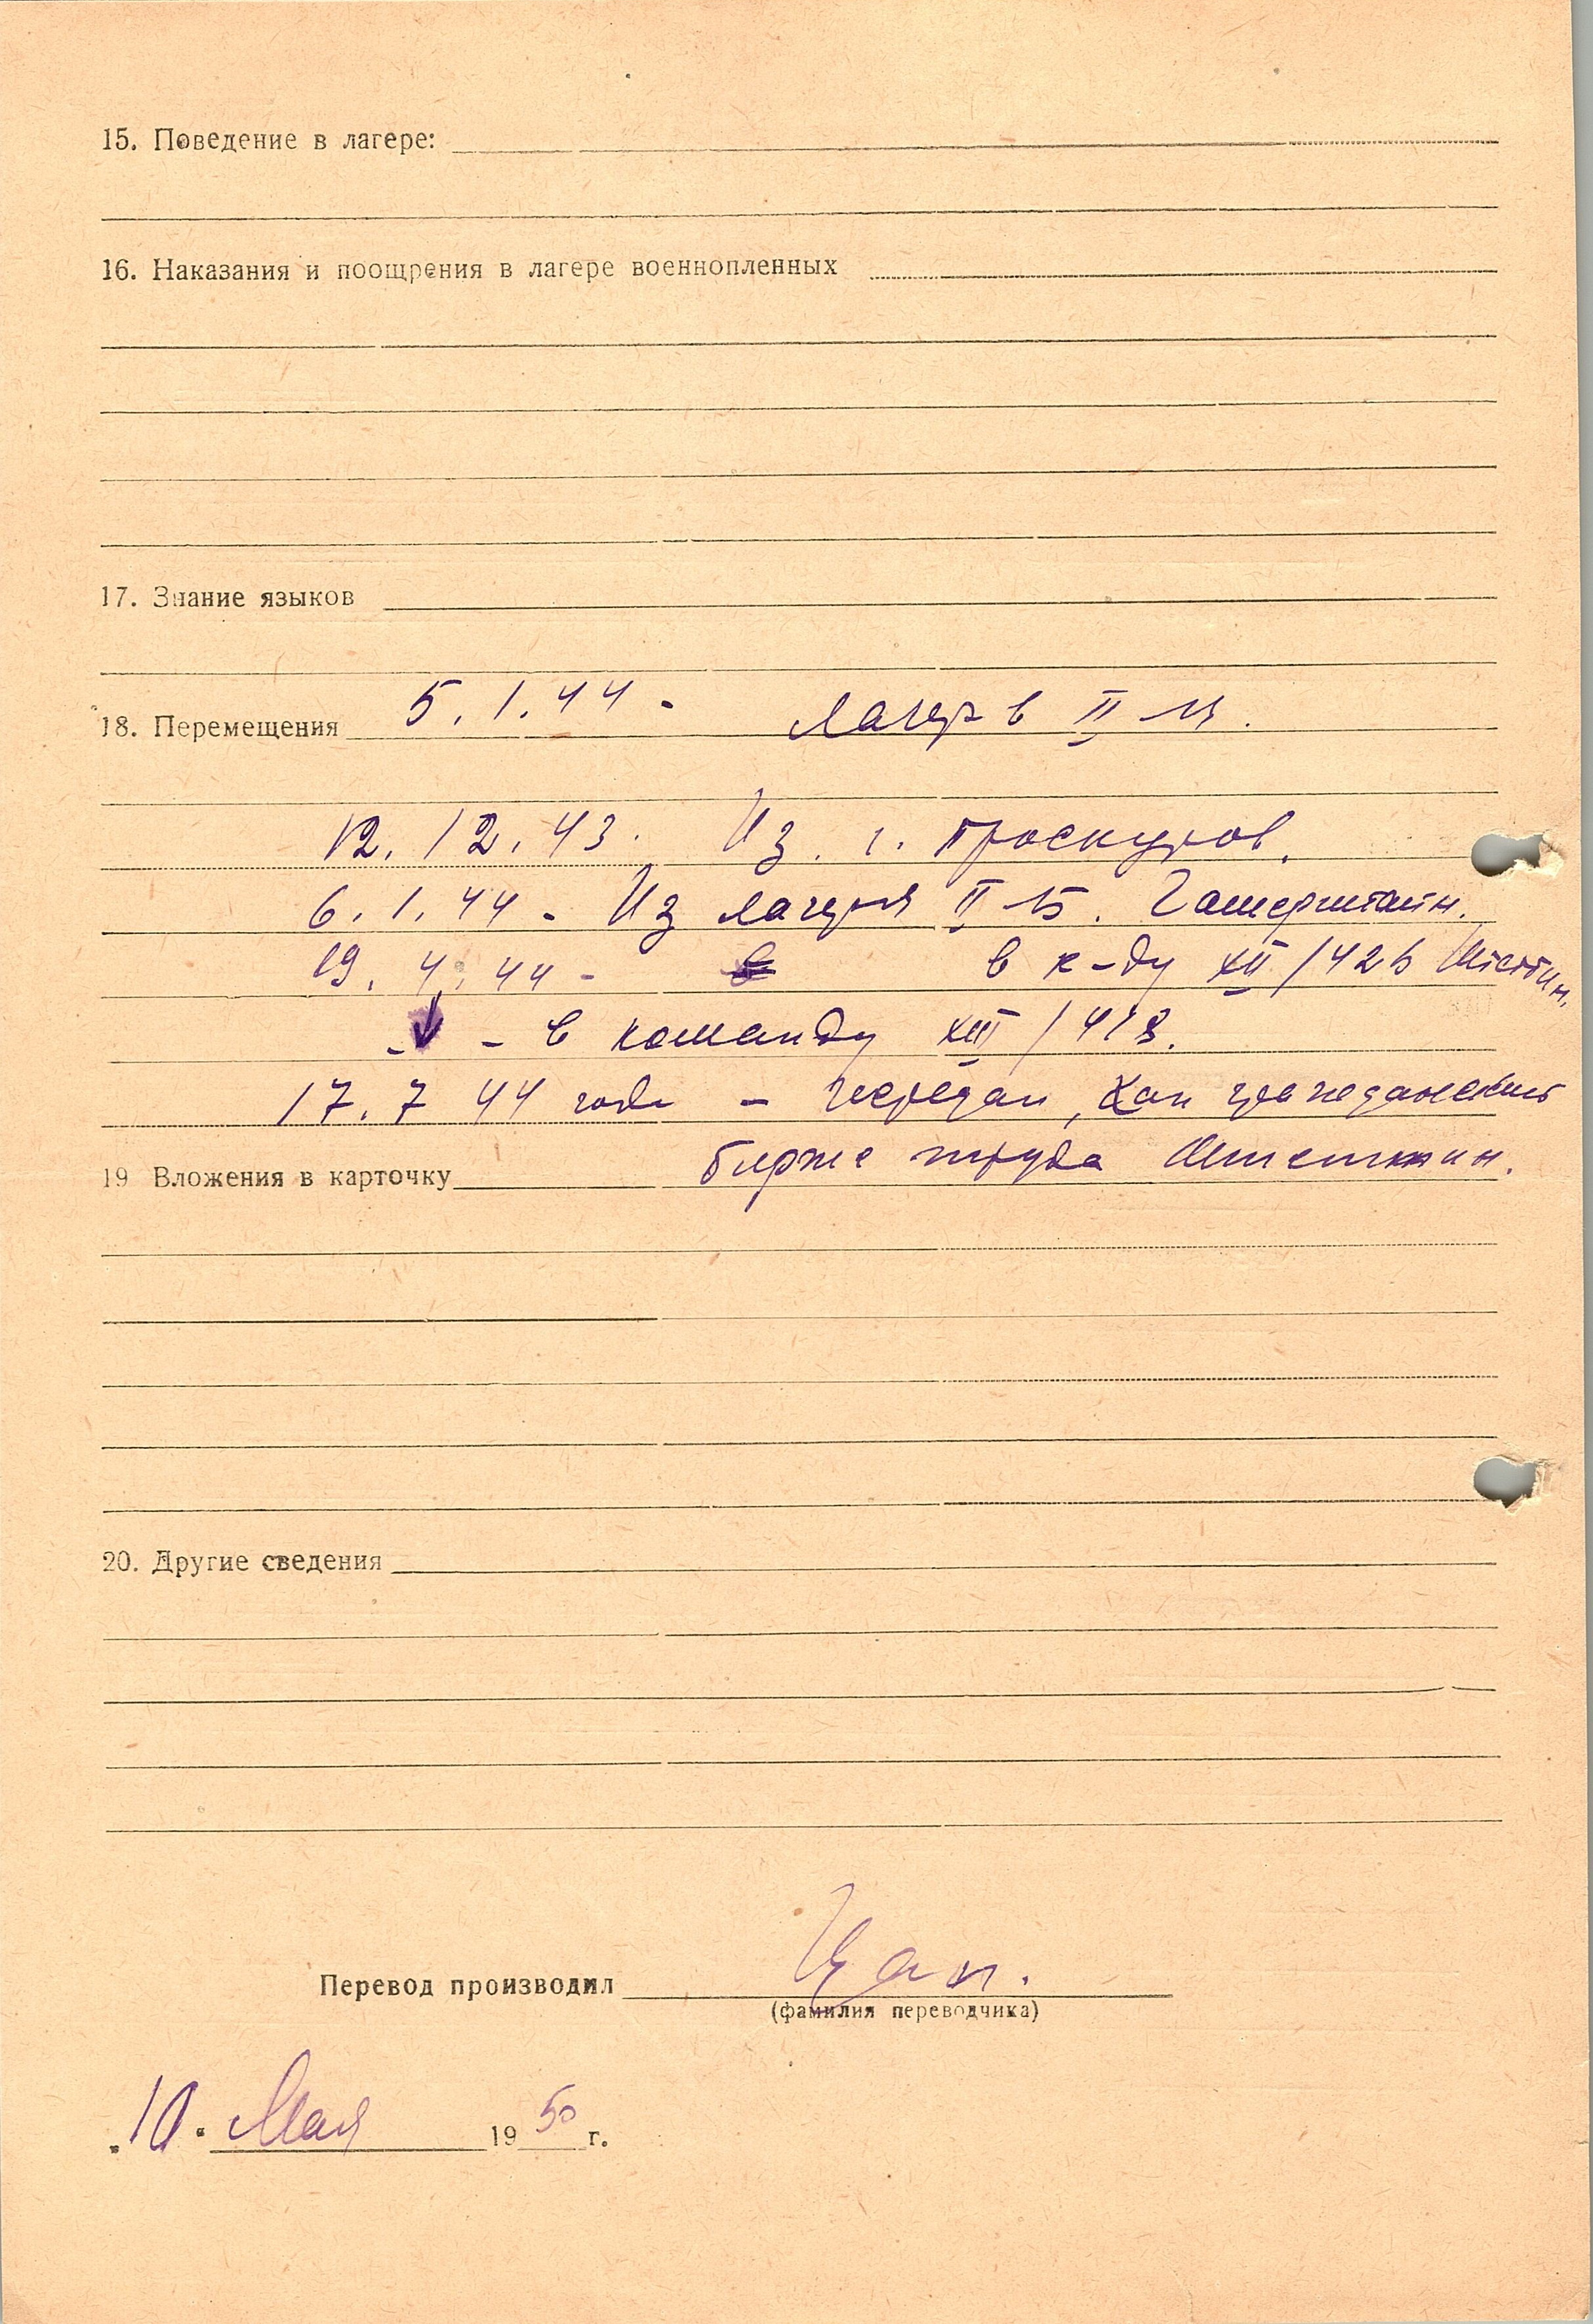 15. Поведение в лагере:
16. Наказания и поощрения в лагере военнопленных
17. Знание языков
18. Перемещения 5.1.44 - лагерь II
12.12.43. Из г. Проскуров.
6.1.44 - Из лагеря II Б. Гамерштайн.
19.4.44 - в к-ду XII/426
- в команду XIII/418.
17.7 44 года - передан, как гражданский
19 Вложения в карточку бирже труда Штеттин.
20. Другие сведения
Перевод производил Цап.
(фамилия переводчика)
„10. Мая 1950 г.